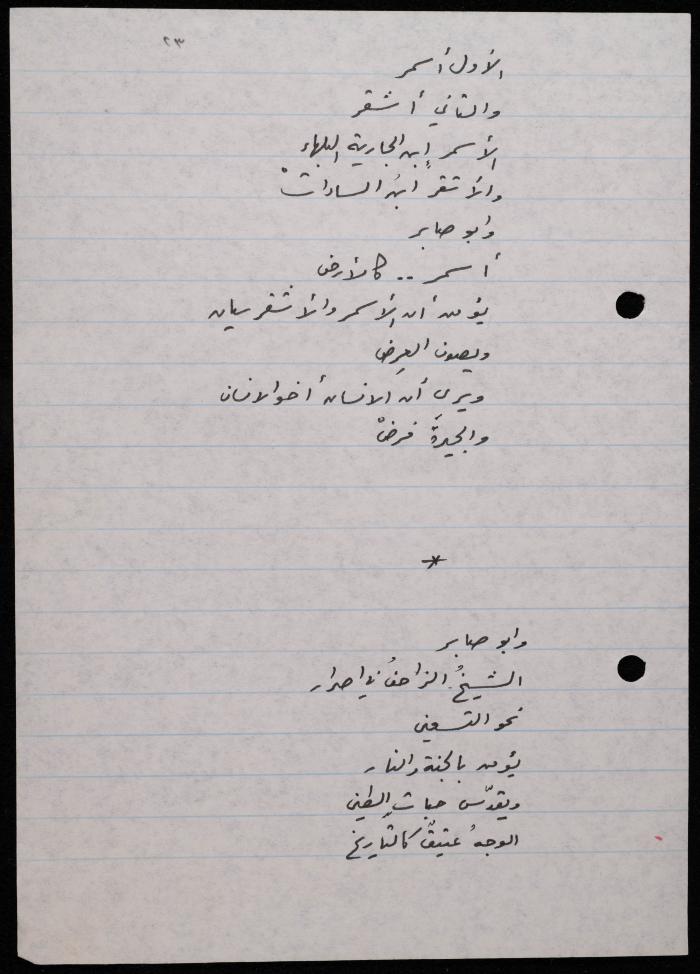 ٢٣
الأول أسمر
والثاني أشقر
الأسمر إبن الجارية البلهاء
والأشقرُ ابنُ السادات
وابو صابر
أسمر .. كالأرض
يؤمن أن الأسمر والأشقر سيان
ويصون العِرض
ويرى أن الانسان أخو الانسان
والجيرةَ فرضْ
*
وابو صابر
الشيخُ الزاحفُ في اصرار
نحو التسعين
يؤمن بالجنة والنار
ويقدّس حبات الطين
الوجهُ عتيقٌ كالتاريخ